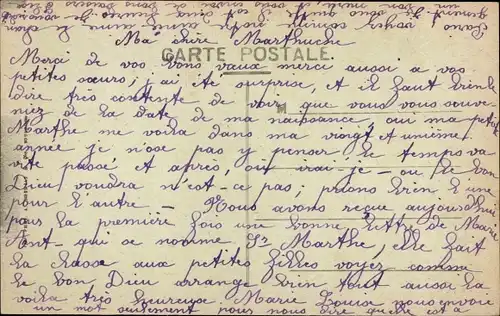 Ma chère Marthuche
CARTE POSTALE.
Merci de vos bons vœux merci aussi a vos
petites sœurs, j'ai été surprise, et il faut bien le
dire très contente de voir que vous vous souve
niez de la date de ma naissance, oui ma petite
Marthe me voilà dans ma vingt et unième
année je n'ose pas y penser le temps va
vite passé, et après, où irai-je — où le bon
Dieu voudra n'est-ce pas, prions bien l'une
pour l'autre — Nous avons reçue aujourd'hui
pour la première fois une bonne lettre de Marie
Ant— qui se nomme Sr Marthe, elle fait
la classe aux petites filles voyez comme
le bon Dieu arrange bien tout aussi la
voilà très heureuse. Marie Louise nous envoie
un mot seulement pour nous dire qu'elle est a